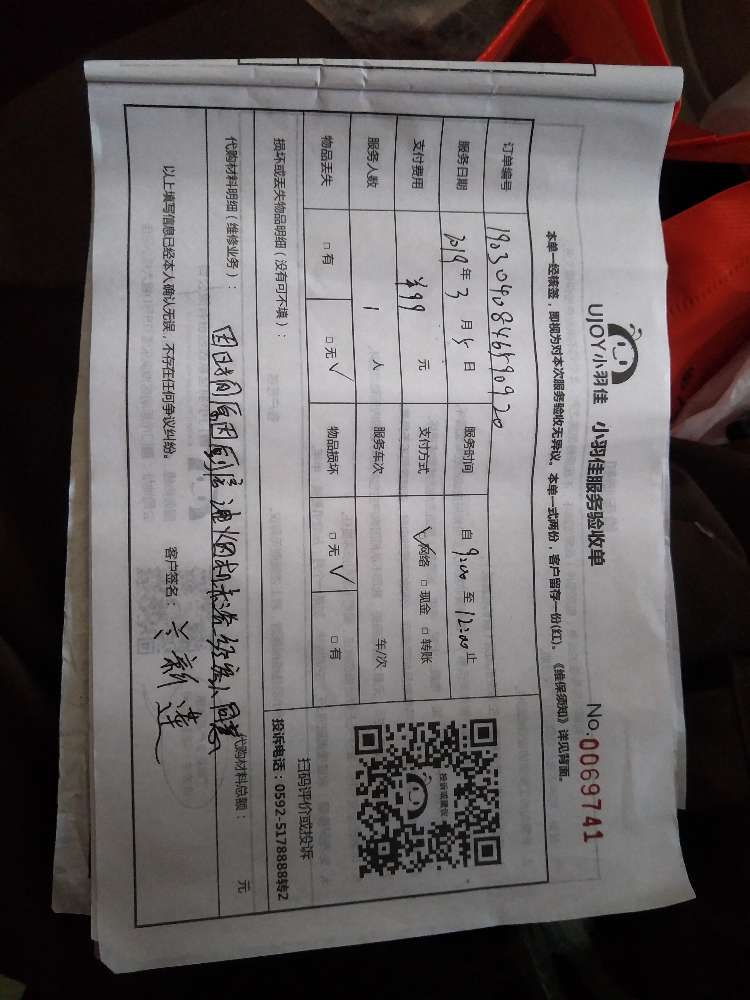 UJOY小羽佳 小羽佳服务验收单
No.0069741
本单一经核签，即视为对本次服务验收无异议。本单一式两份，客户留存一份(红)。《维保须知》详见背面。
订单编号 1903040846590920
服务日期 2019年3月5日 服务时间 自9:00至12:00止
支付费用 ¥99元 支付方式 ☑网络 □现金 □转账
服务人数 1人 服务车次 车/次
物品丢失 □有 □无√ 物品损坏 □无√ □有
扫码评价或投诉
投诉建议
投诉电话：0592-5178888转2
损坏或丢失物品明细（没有可不填）：
代购材料明细（维修业务）：
油烟机 客人同意
代购材料总额： 元
以上填写信息已经本人确认无误，不存在任何争议纠纷。 客户签名：